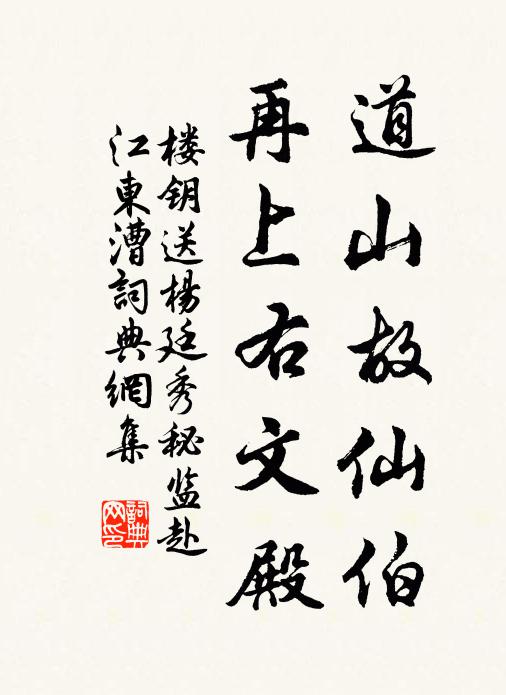 道山故仙伯
再上右文殿
楼钥送楊廷秀秘监赴
江東漕詞典網集
詞典
网印